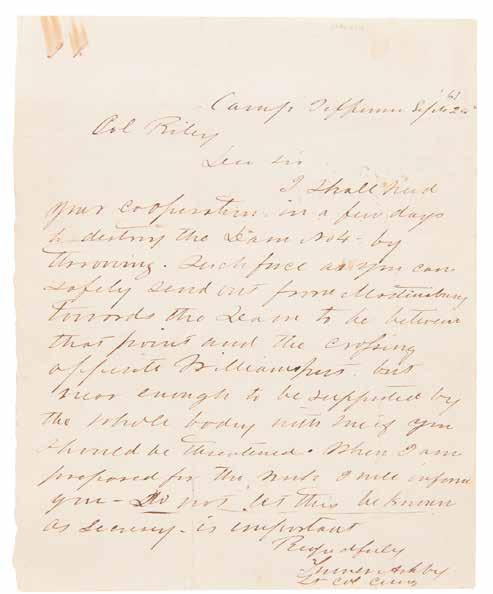 '61
Camp Jefferson Sept 24
Col Riley
Dear sir
I shall need
your cooperation in a few days
to destroy the Dam No 4 - by
throwing. such force as you can
safely send out from Martinsburg
towards the Dam to be between
that point and the crossing
opposite Williamsport. but
near enough to be supported by
the whole body with me if you
should be threatened. When I am
prepared for the work I will inform
you - Do not let this be known
as secrecy - is important
Respectfully
Turner Ashby
Lt Col Cavy